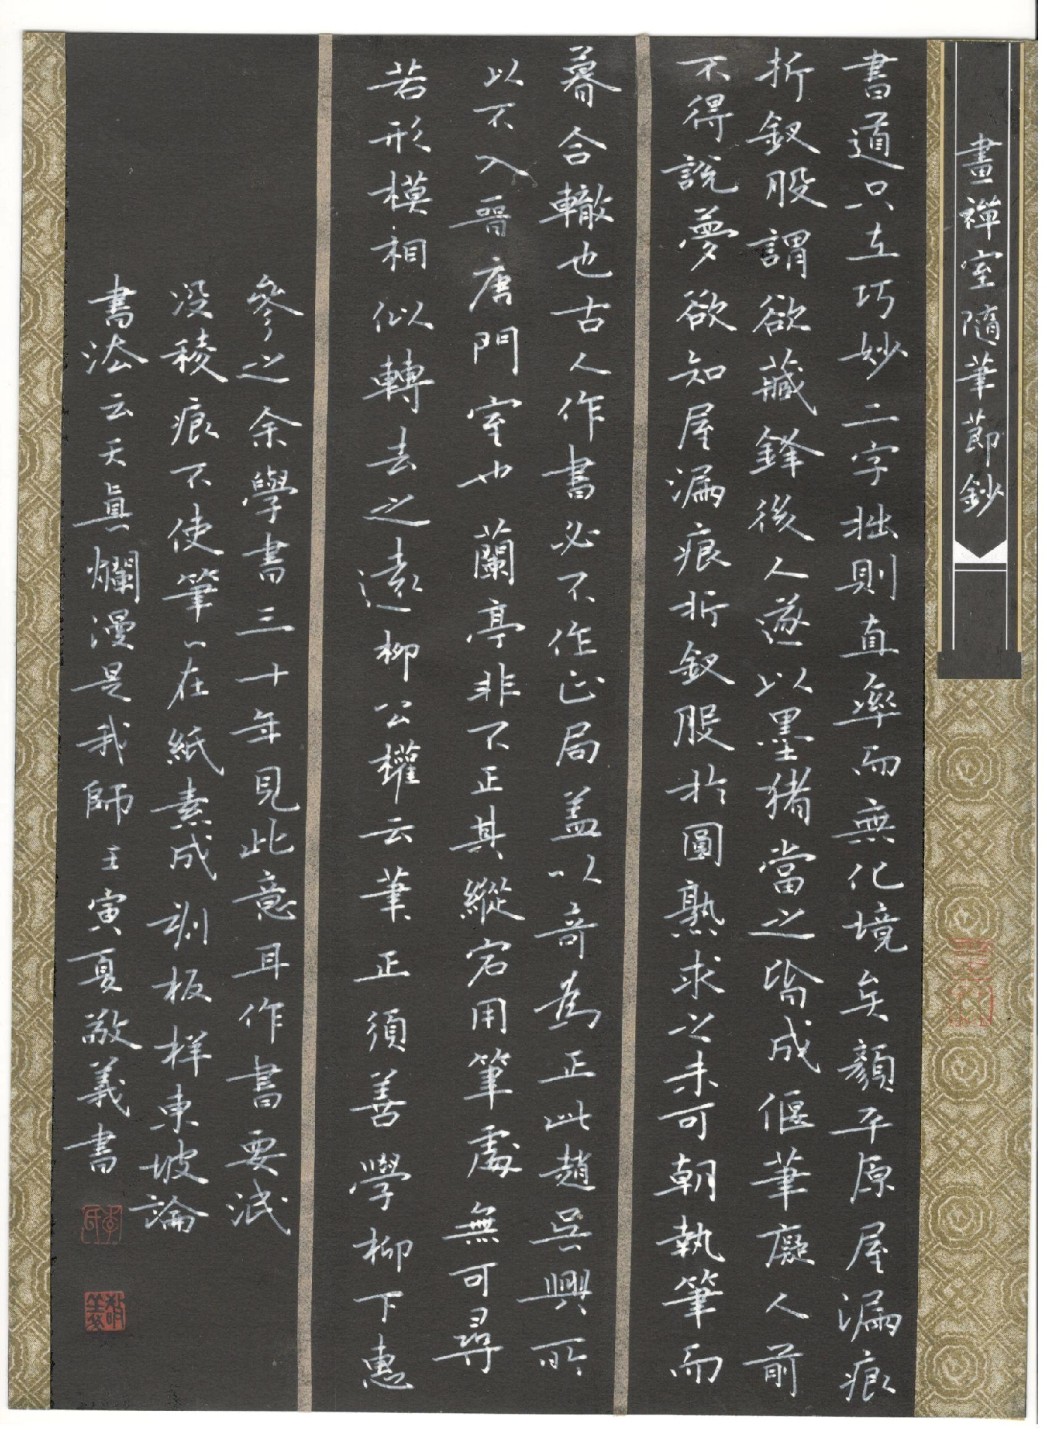 畫禪室隨筆節鈔
書道只在巧妙二字拙則直率而無化境矣顏平原屋漏痕
折釵股謂欲藏鋒後人遂以墨豬當之皆成偃筆癡人前
不得說夢欲知屋漏痕折釵股於圓熟求之未可朝執筆而
暮合轍也古人作書必不作正局蓋以奇為正此趙吳興所
以不入晉唐門室也蘭亭非不正其縱宕用筆處無可尋
若形模相似轉去之遠柳公權云筆正須善學柳下惠
參之余學書三十年見此意耳作書要泯
沒稜痕不使筆〻在紙素成刻板样東坡論
書法云天真爛漫是我師 壬寅夏敬義書
李氏
敬義